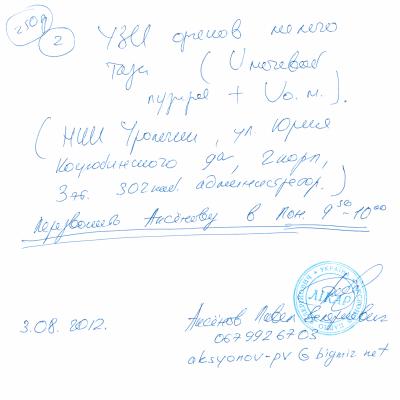 250g
2
УЗИ органов малого
таза (U мочевой
пузыря + Uо.м.).
(НИИ Урологии, ул Юрия
Коцюбинского 9а, 2корп,
3 эт. 302 каб. администратор.)
Перезвонить Аксёнову в Пон. 9 30 - 10 00
ЛІКАР
3.08.2012.
Аксёнов Павел Валериевич
067 992 67 03
aksyonov-pv@bigmir.net